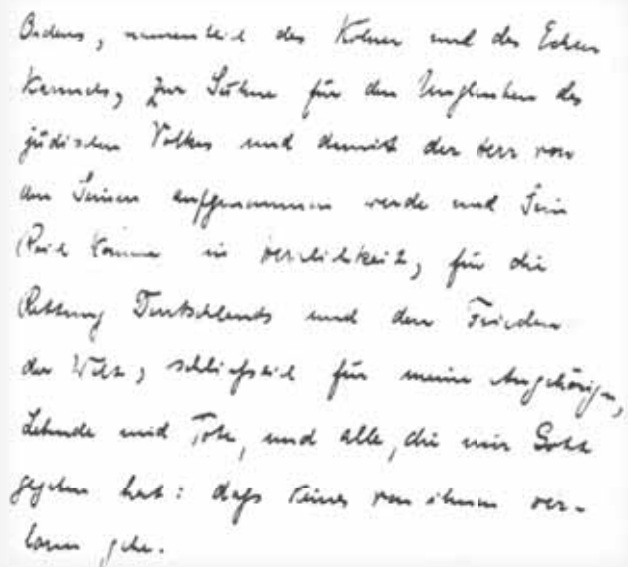 Ordens, namentlich des Kölner und des Echter
Karmels, zur Sühne für den Unglauben des
jüdischen Volkes und damit der Herr von
den Seinen aufgenommen werde und Sein
Reich komme in Herrlichkeit, für die
Rettung Deutschlands und den Frieden
der Welt, schließlich für meine Angehörigen,
Lebende und Tote, und alle, die mir Gott
gegeben hat: daß keines von ihnen ver-
loren gehe.